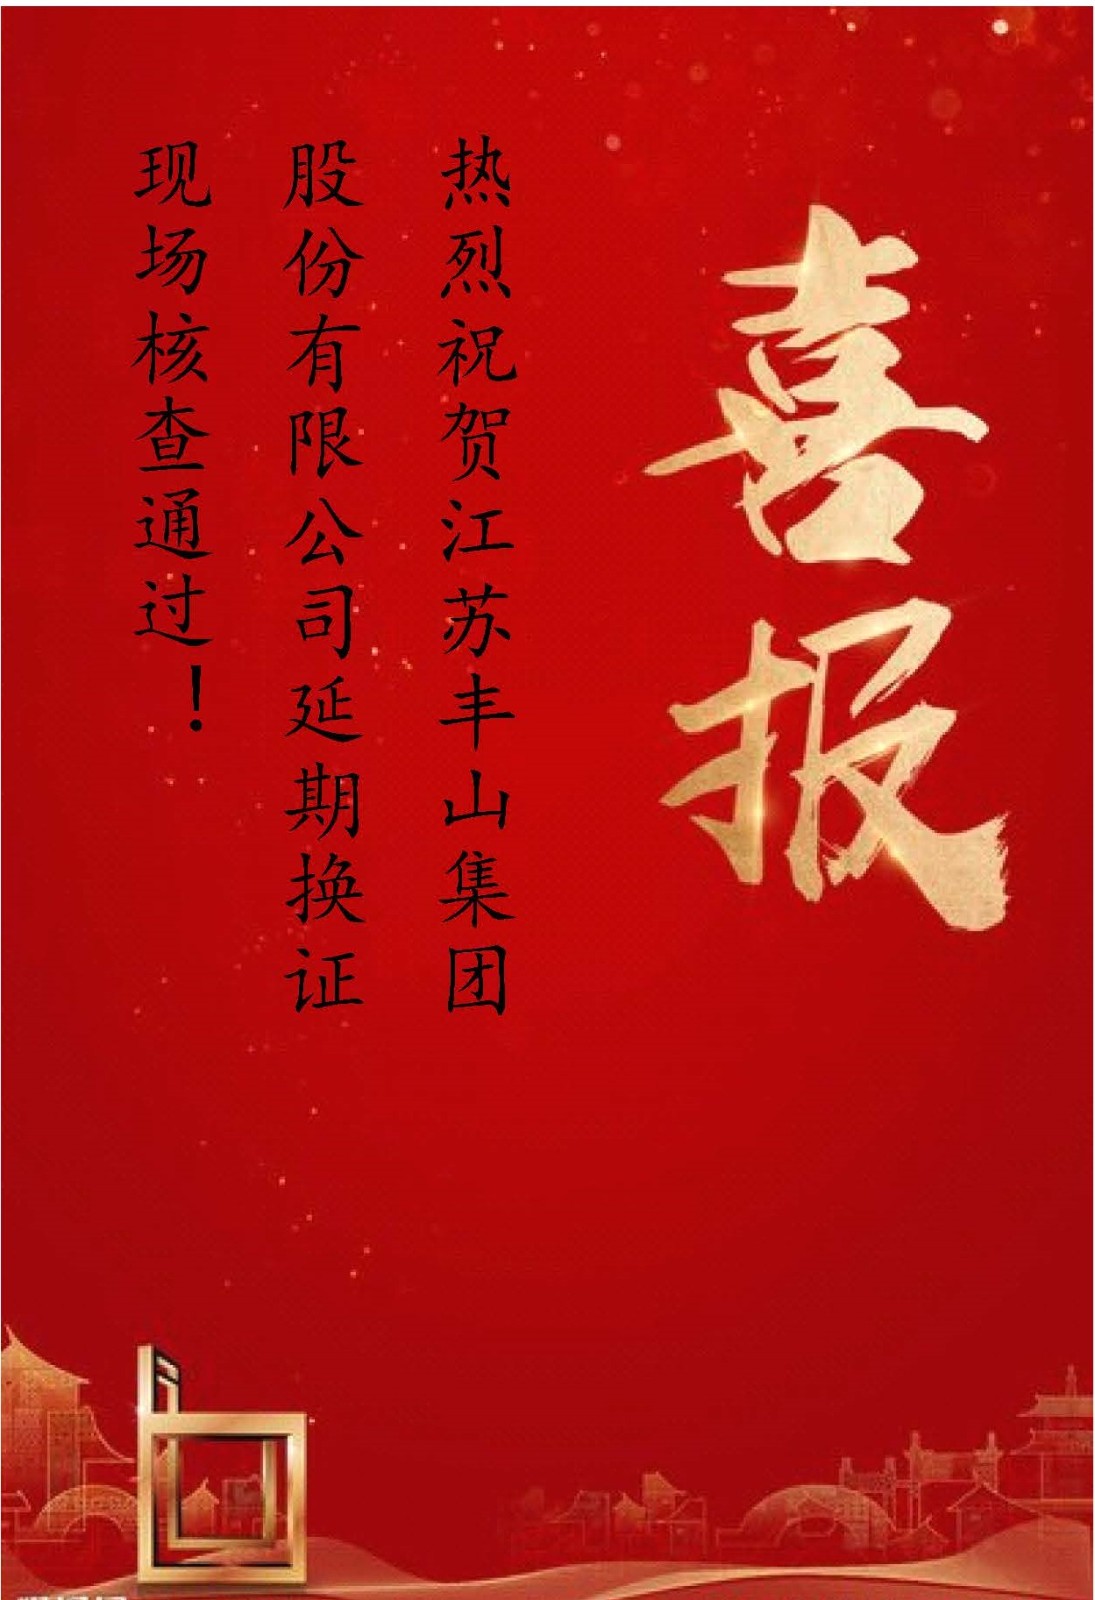 喜报
热烈祝贺江苏丰山集团
股份有限公司延期换证
现场核查通过！